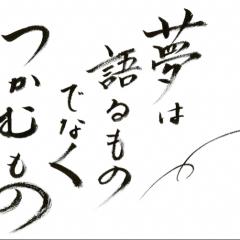 夢は
語るもの
でなく
つかむもの